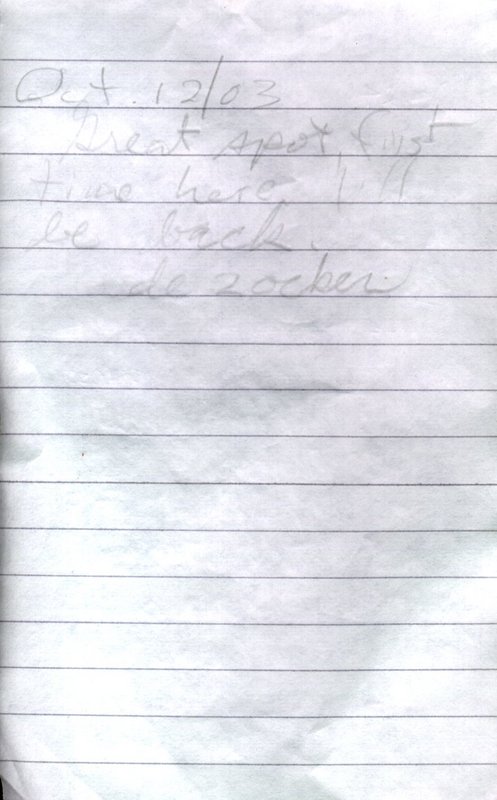 Oct. 12/03
Great spot, first
time here, I'll
be back.
de zocker